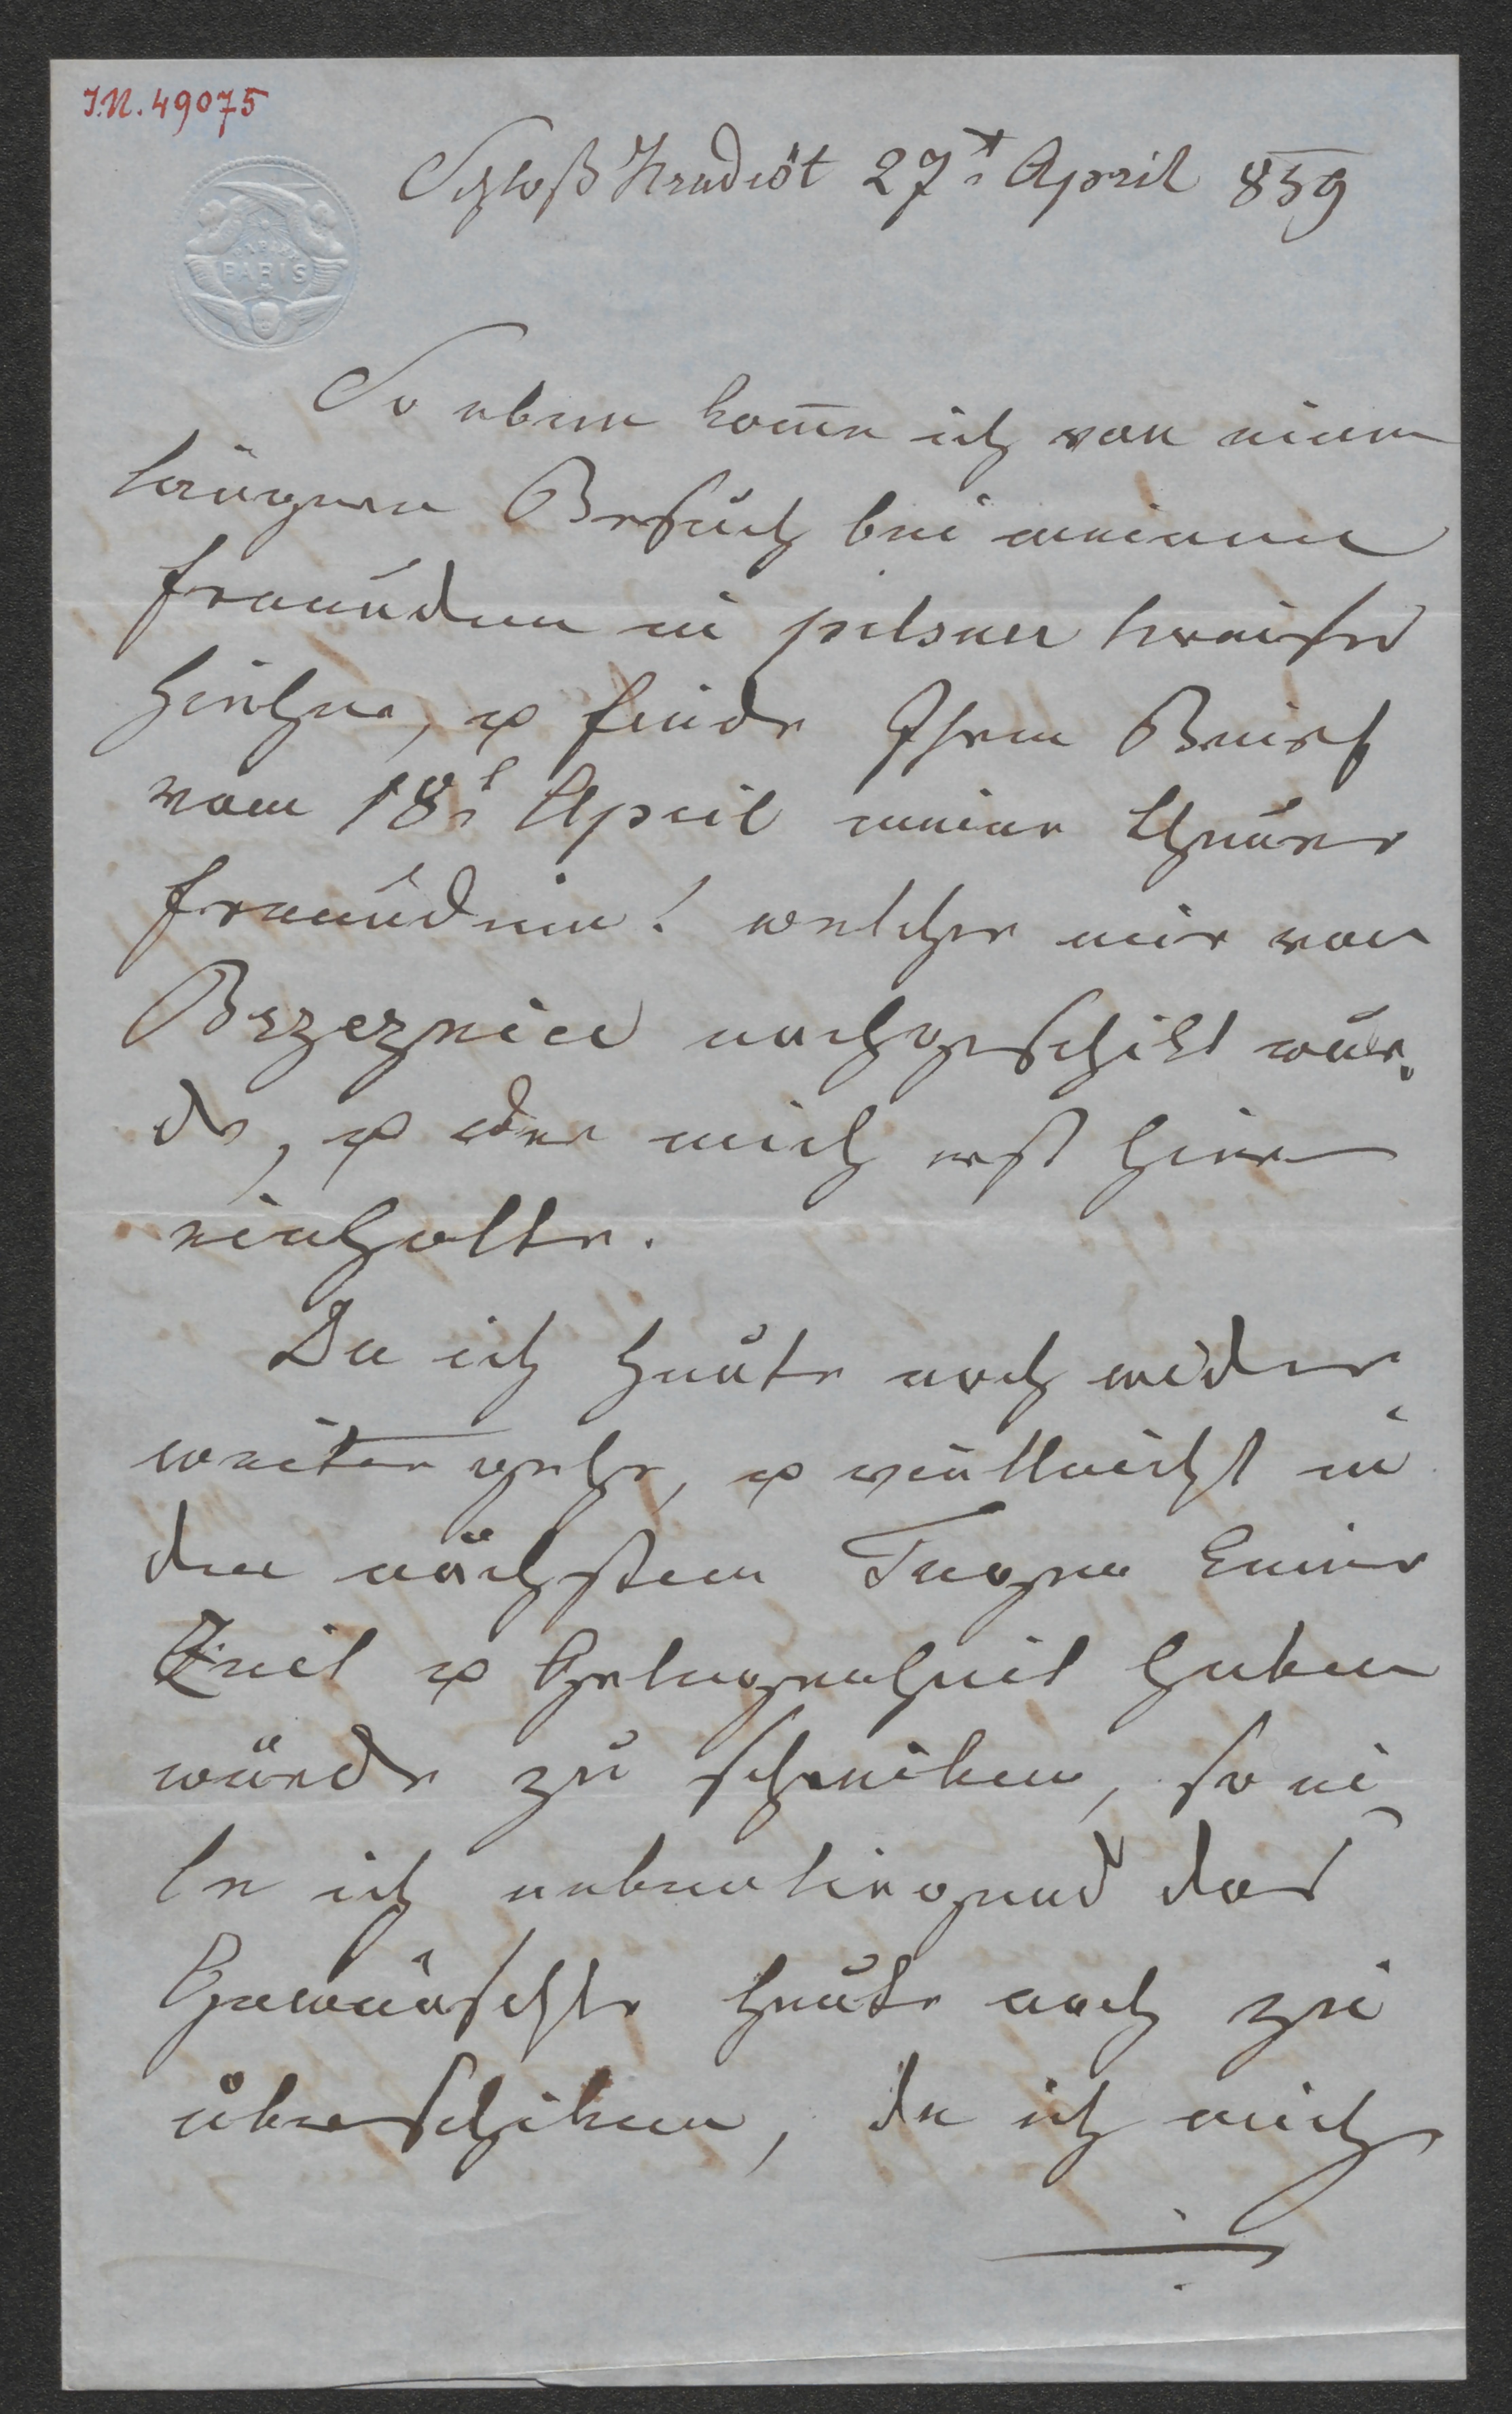 I.N. 49075
PARIS
Schloß Hradiöt 27t April 859
So eben kom̄e ich von einem
längern Besuch bei meinen
Freunden in pilsner Kreise
hieher, & finde Ihren Brief
vom 18t April meine theure
Freundin! welcher mir von
Brzeznic nachgeschikt wur-
de, & der mich erst hier
einholte.
Da ich heute noch wieder
weiter gehe, & vielleicht in
den nächsten Tagen keine
Zeit & Gelegenheit haben
würde zu schreiben, so ei-
le ich nebenliegend das
Gewünschte heute noch zu
überschiken, da ich mich